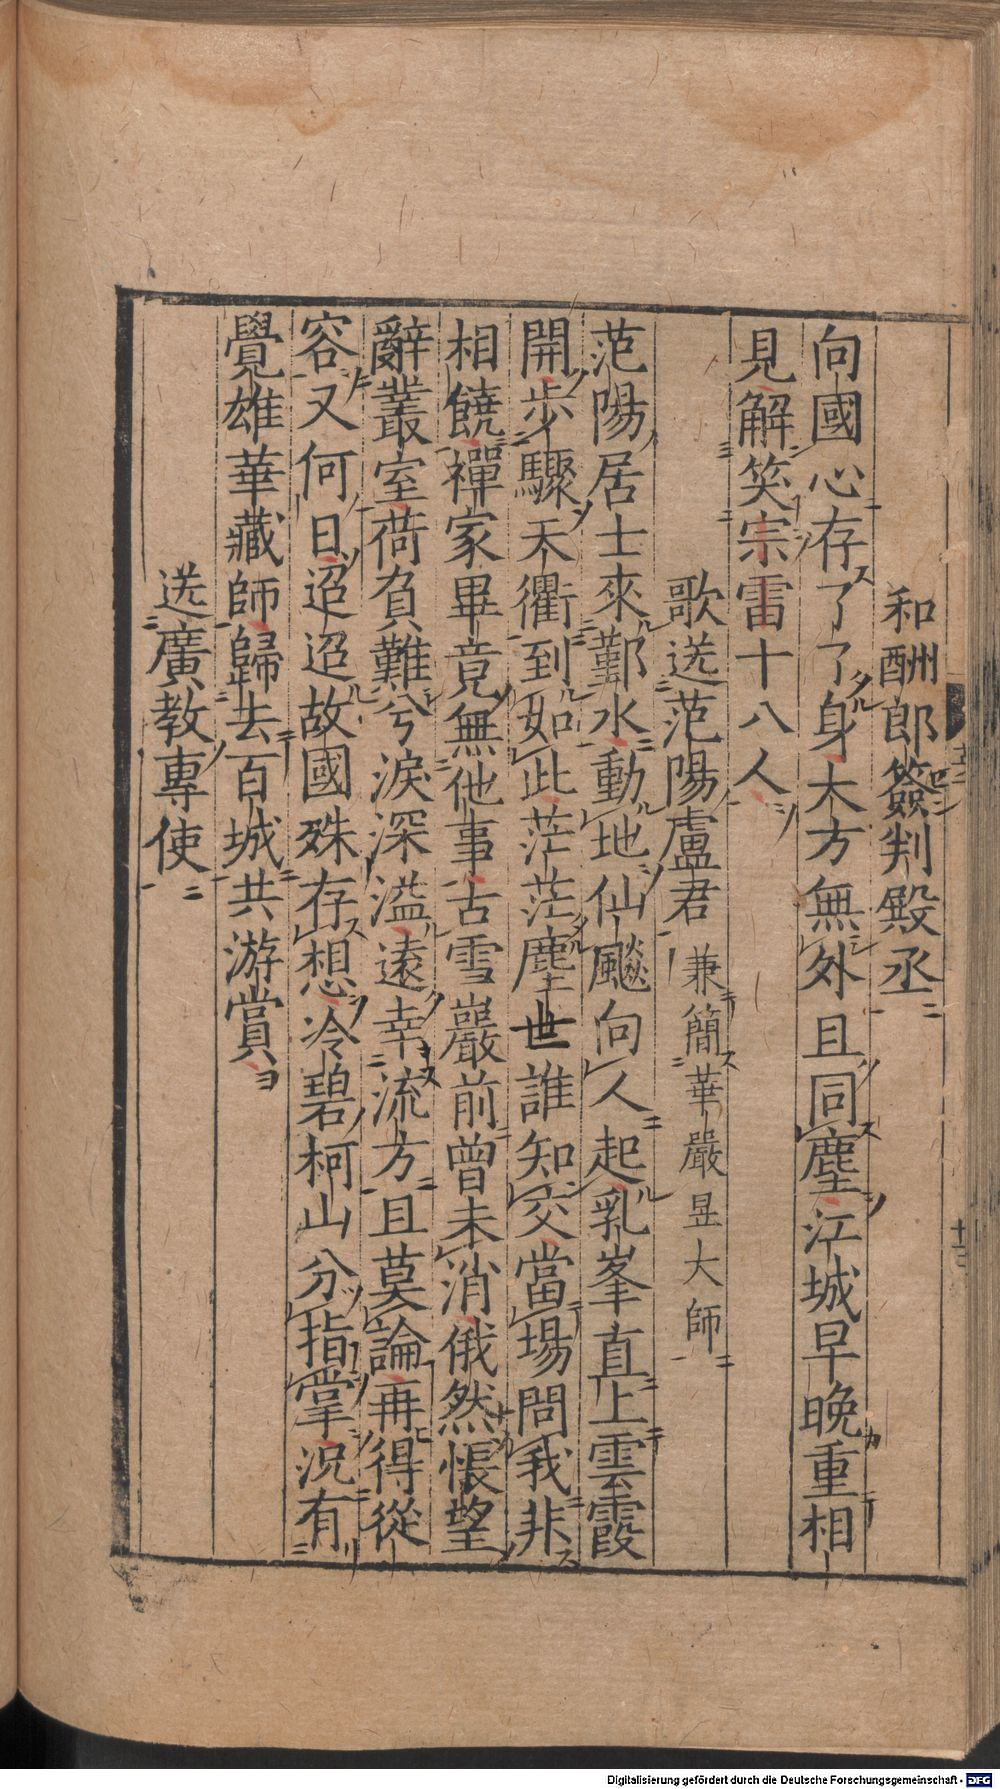 和酬郎簽判殿丞
向國心存了了身大方無外且同塵江城早晚重相
見解笑宗雷十八人
歌送范陽盧君兼簡華嚴昱大師
范陽居士來鄞水動地仙飈向人起乳峯直上雲霞
開步驟天衢到如此茫茫塵世誰知交當場問我非
相饒禪家畢竟無他事古雪巖前曾未消俄然悵望
辭叢室荷負難兮淚深溢遠幸流方且莫論再得從
容又何日迢迢故國殊存想冷碧柯山分指掌況有
覺雄華藏師歸去百城共游賞
送廣教專使
Digitalisierung gefördert durch die Deutsche Forschungsgemeinschaft - DFG